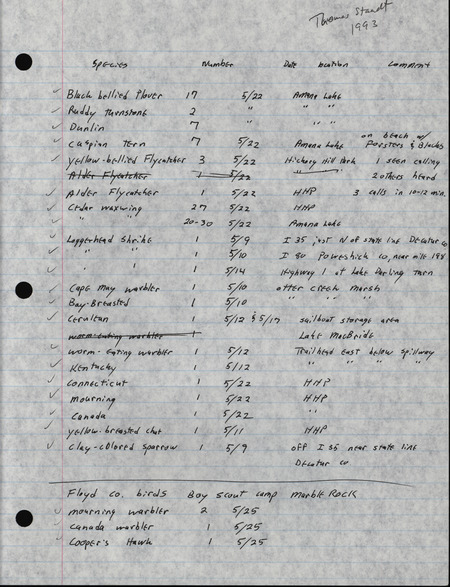 Thomas Staudt
1993
Species Number Date Location Comment
Black bellied Plover 17 5/22 Amana Lake
Ruddy Turnstone 2 " " "
Dunlin 7 " " "
on beach w/
Caspian Tern 7 5/22 Amana Lake Forsters & Blacks
Yellow-bellied Flycatcher 3 5/22 Hickory Hill Park 1 seen calling
Alder Flycatcher 1 5/22 2 others heard
Alder Flycatcher 1 5/22 HHP 3 calls in 10-12 min.
Cedar waxwing 27 5/22 HHP
" " 20-30 5/22 Amana Lake
Loggerhead Shrike 1 5/9 I 35 just N of state line Decatur Co
" " 1 5/10 I 80 Poweshiek Co, near mile 198
" " 1 5/14 Highway 1 at Lake Darling turn
Cape May warbler 1 5/10 otter creek marsh
Bay-Breasted 1 5/10 " " "
Cerulean 1 5/12 & 5/17 sailboat storage area
worm-eating warbler 1 Lake MacBride
worm-eating warbler 1 5/12 Trailhead east below spillway
Kentucky 1 5/12 " " " "
Connecticut 1 5/22 HHP
mourning 1 5/22 HHP
Canada 1 5/22 "
yellow-breasted chat 1 5/11 HHP
Clay-colored sparrow 1 5/9 off I 35 near state line
Decatur co
Floyd co. birds Boy scout camp marble Rock
mourning warbler 2 5/25
Canada warbler 1 5/25
Cooper's Hawk 1 5/25